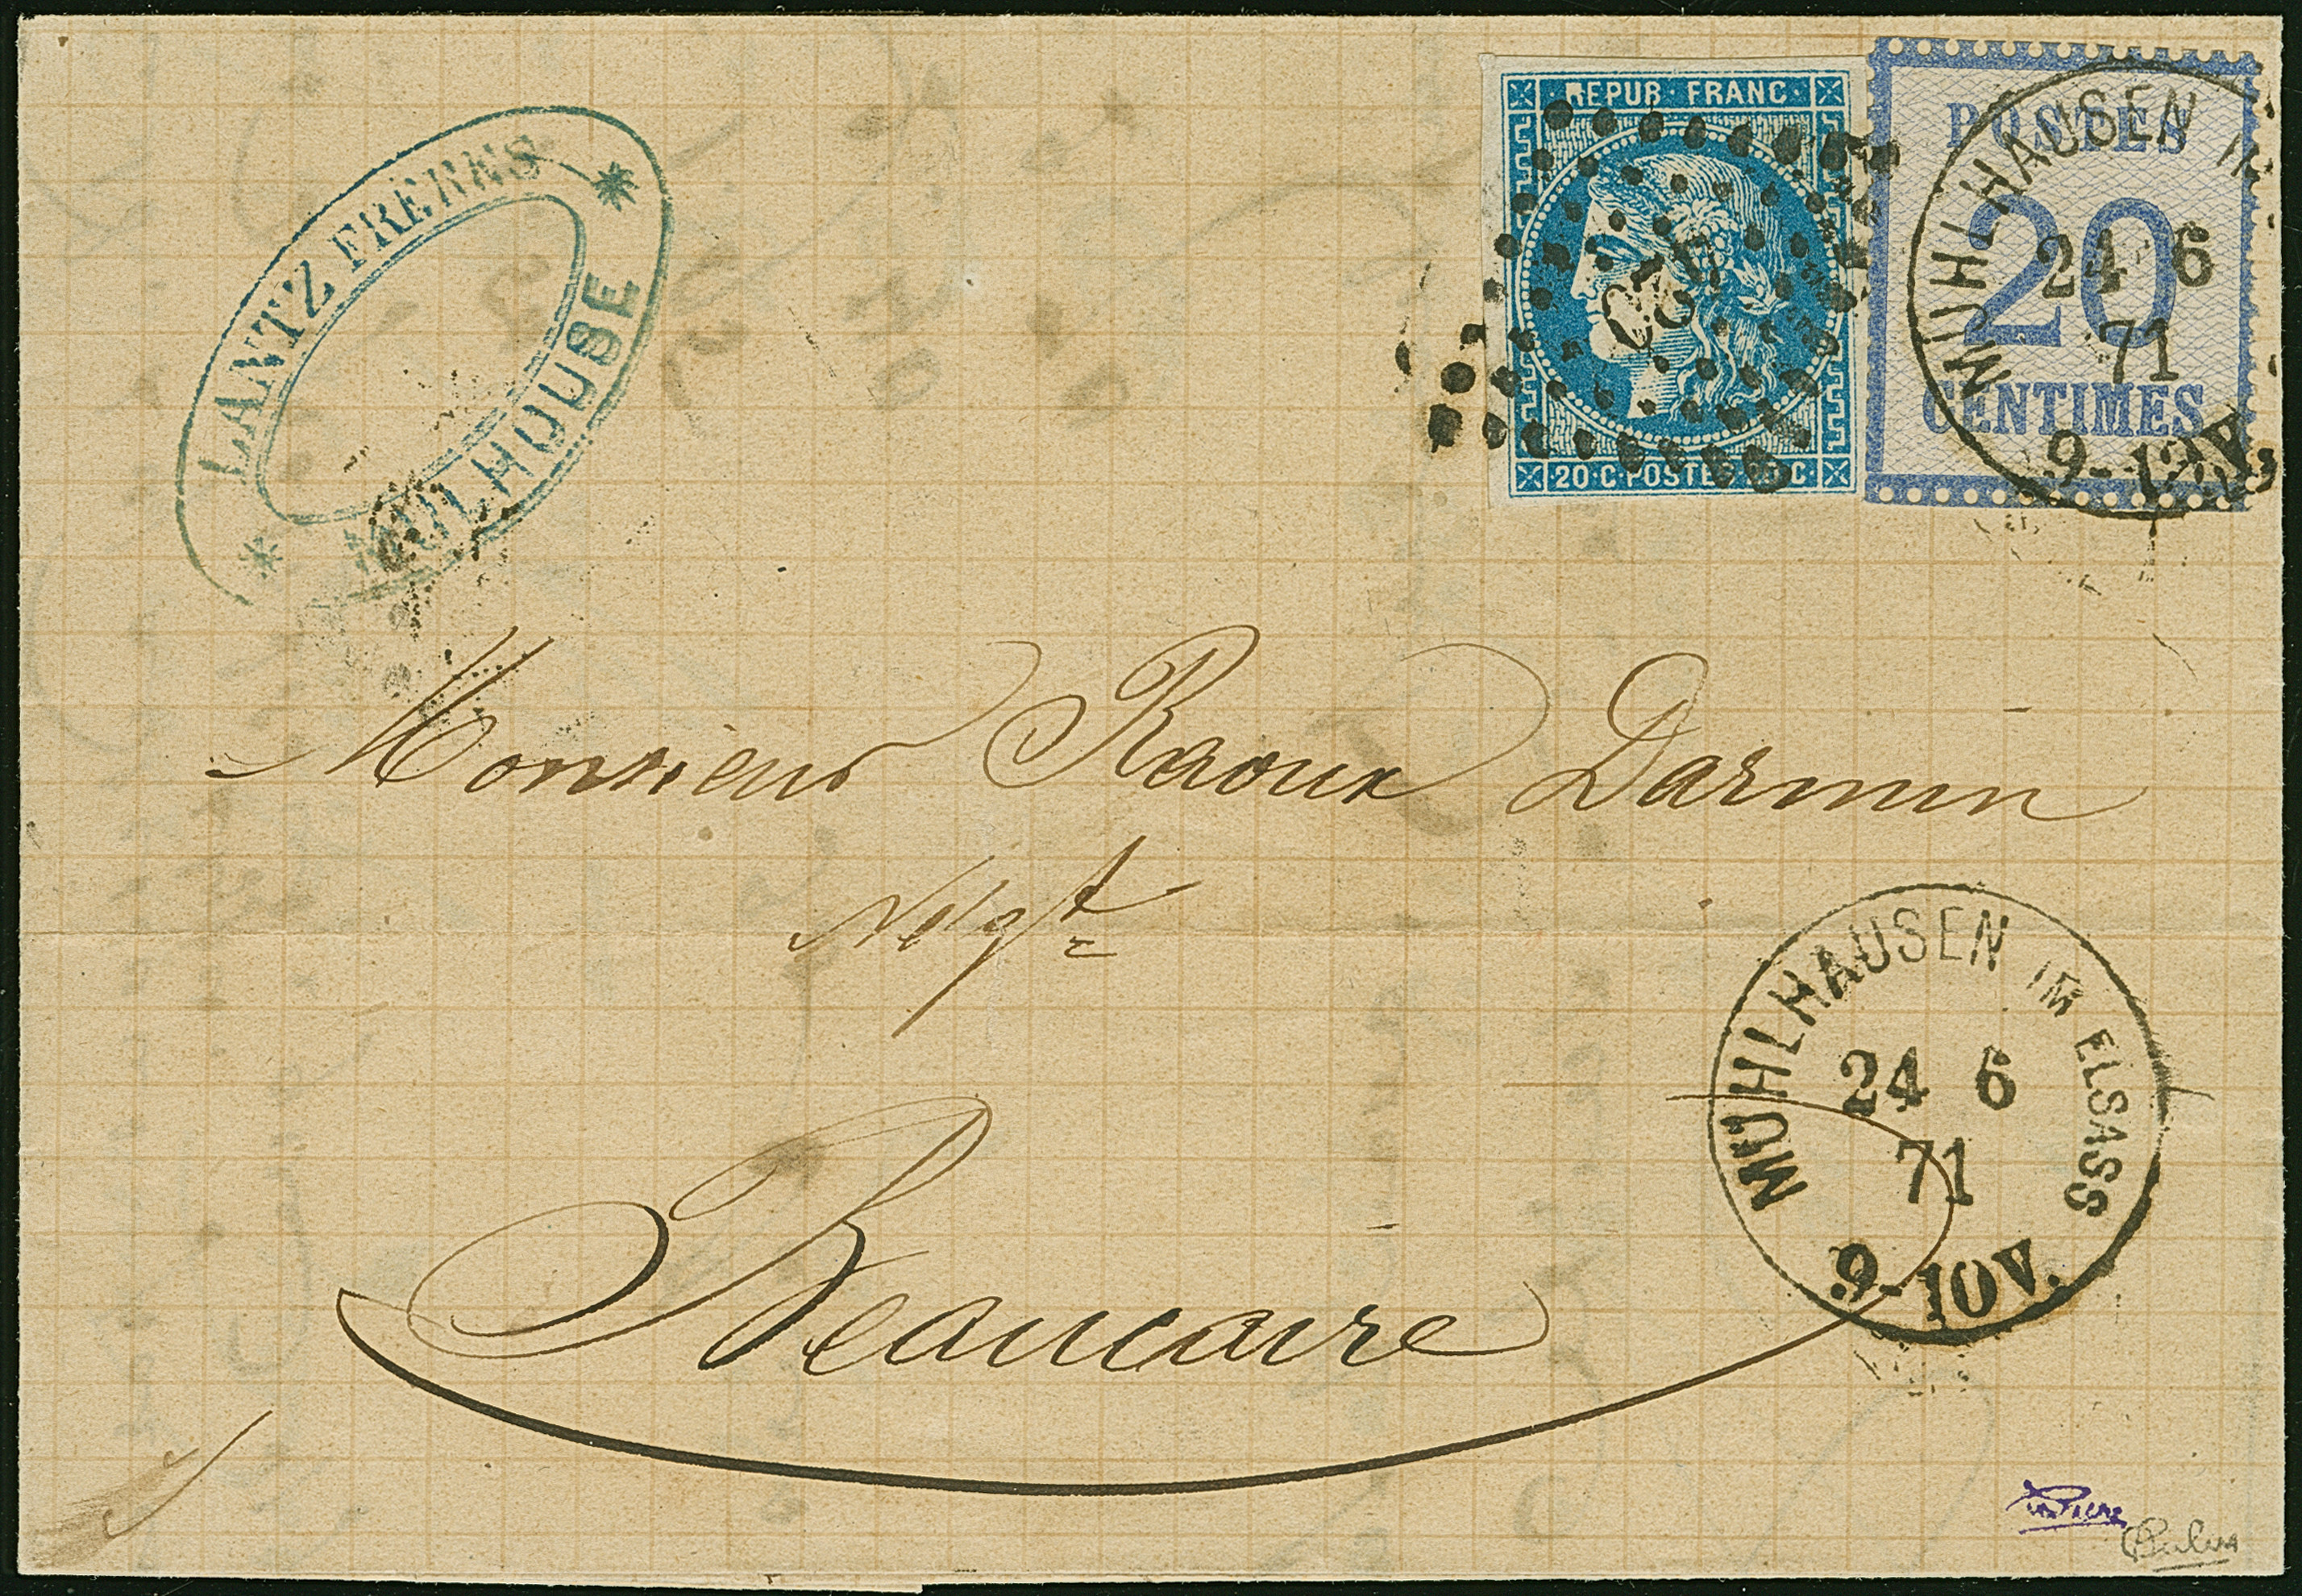 LANTZ FRERES
MULHOUSE
REPUB · FRANC ·
· 20 · C · POSTES · 20 · C
POSTES
20
CENTIMES
MÜHLHAUSEN IM
24 6
71
9-12V.
Monsieur Raoux Darmin
Negt
Beaucaire
MÜHLHAUSEN IM ELSASS
24 6
71
9-10V.